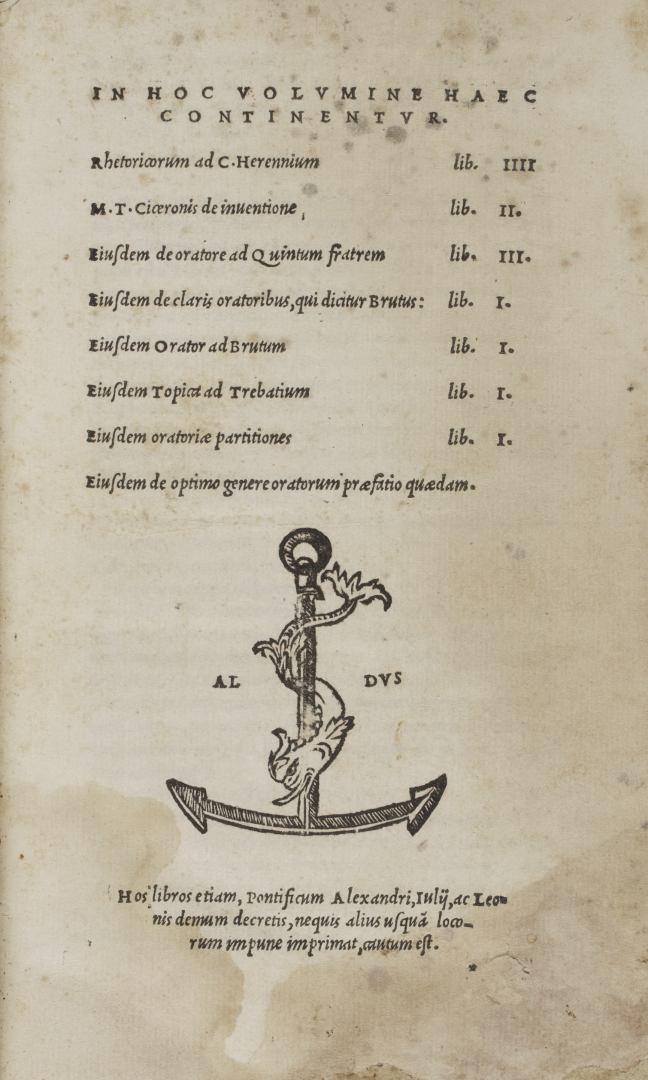 IN HOC VOLVMINE HAEC
CONTINENTVR.
Rhetoricorum ad C. Herennium lib. IIII
M. T. Ciceronis de inuentione, lib. II.
Eiuſdem de oratore ad Quintum fratrem lib. III.
Eiuſdem de claris oratoribus, qui dicitur Brutus: lib. I.
Eiuſdem Orator ad Brutum lib. I.
Eiuſdem Topica ad Trebatium lib. I.
Eiuſdem oratoriæ partitiones lib. I.
Eiuſdem de optimo genere oratorum præfatio quædam.
AL DVS
Hos libros etiam, Pontificum Alexandri, Iulij, ac Leo-
nis demum decretis, nequis alius uſquã loco-
rum impune imprimat, cautum eſt.